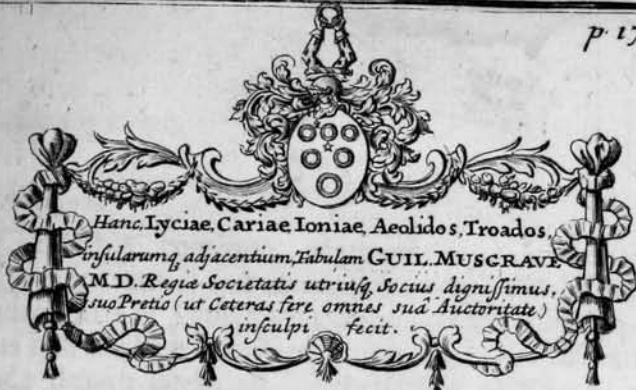 p. 17
Hanc, Lyciae, Cariae Ioniae, Aeolidos, Troados,
insularumq, adjacentium, Tabulam GUIL. MUSGRAVE
M.D. Regiæ Societatis utriusq, Socius dignissimus,
suo Pretio (ut Ceteras fere omnes suâ Auctoritate)
insculpi fecit.